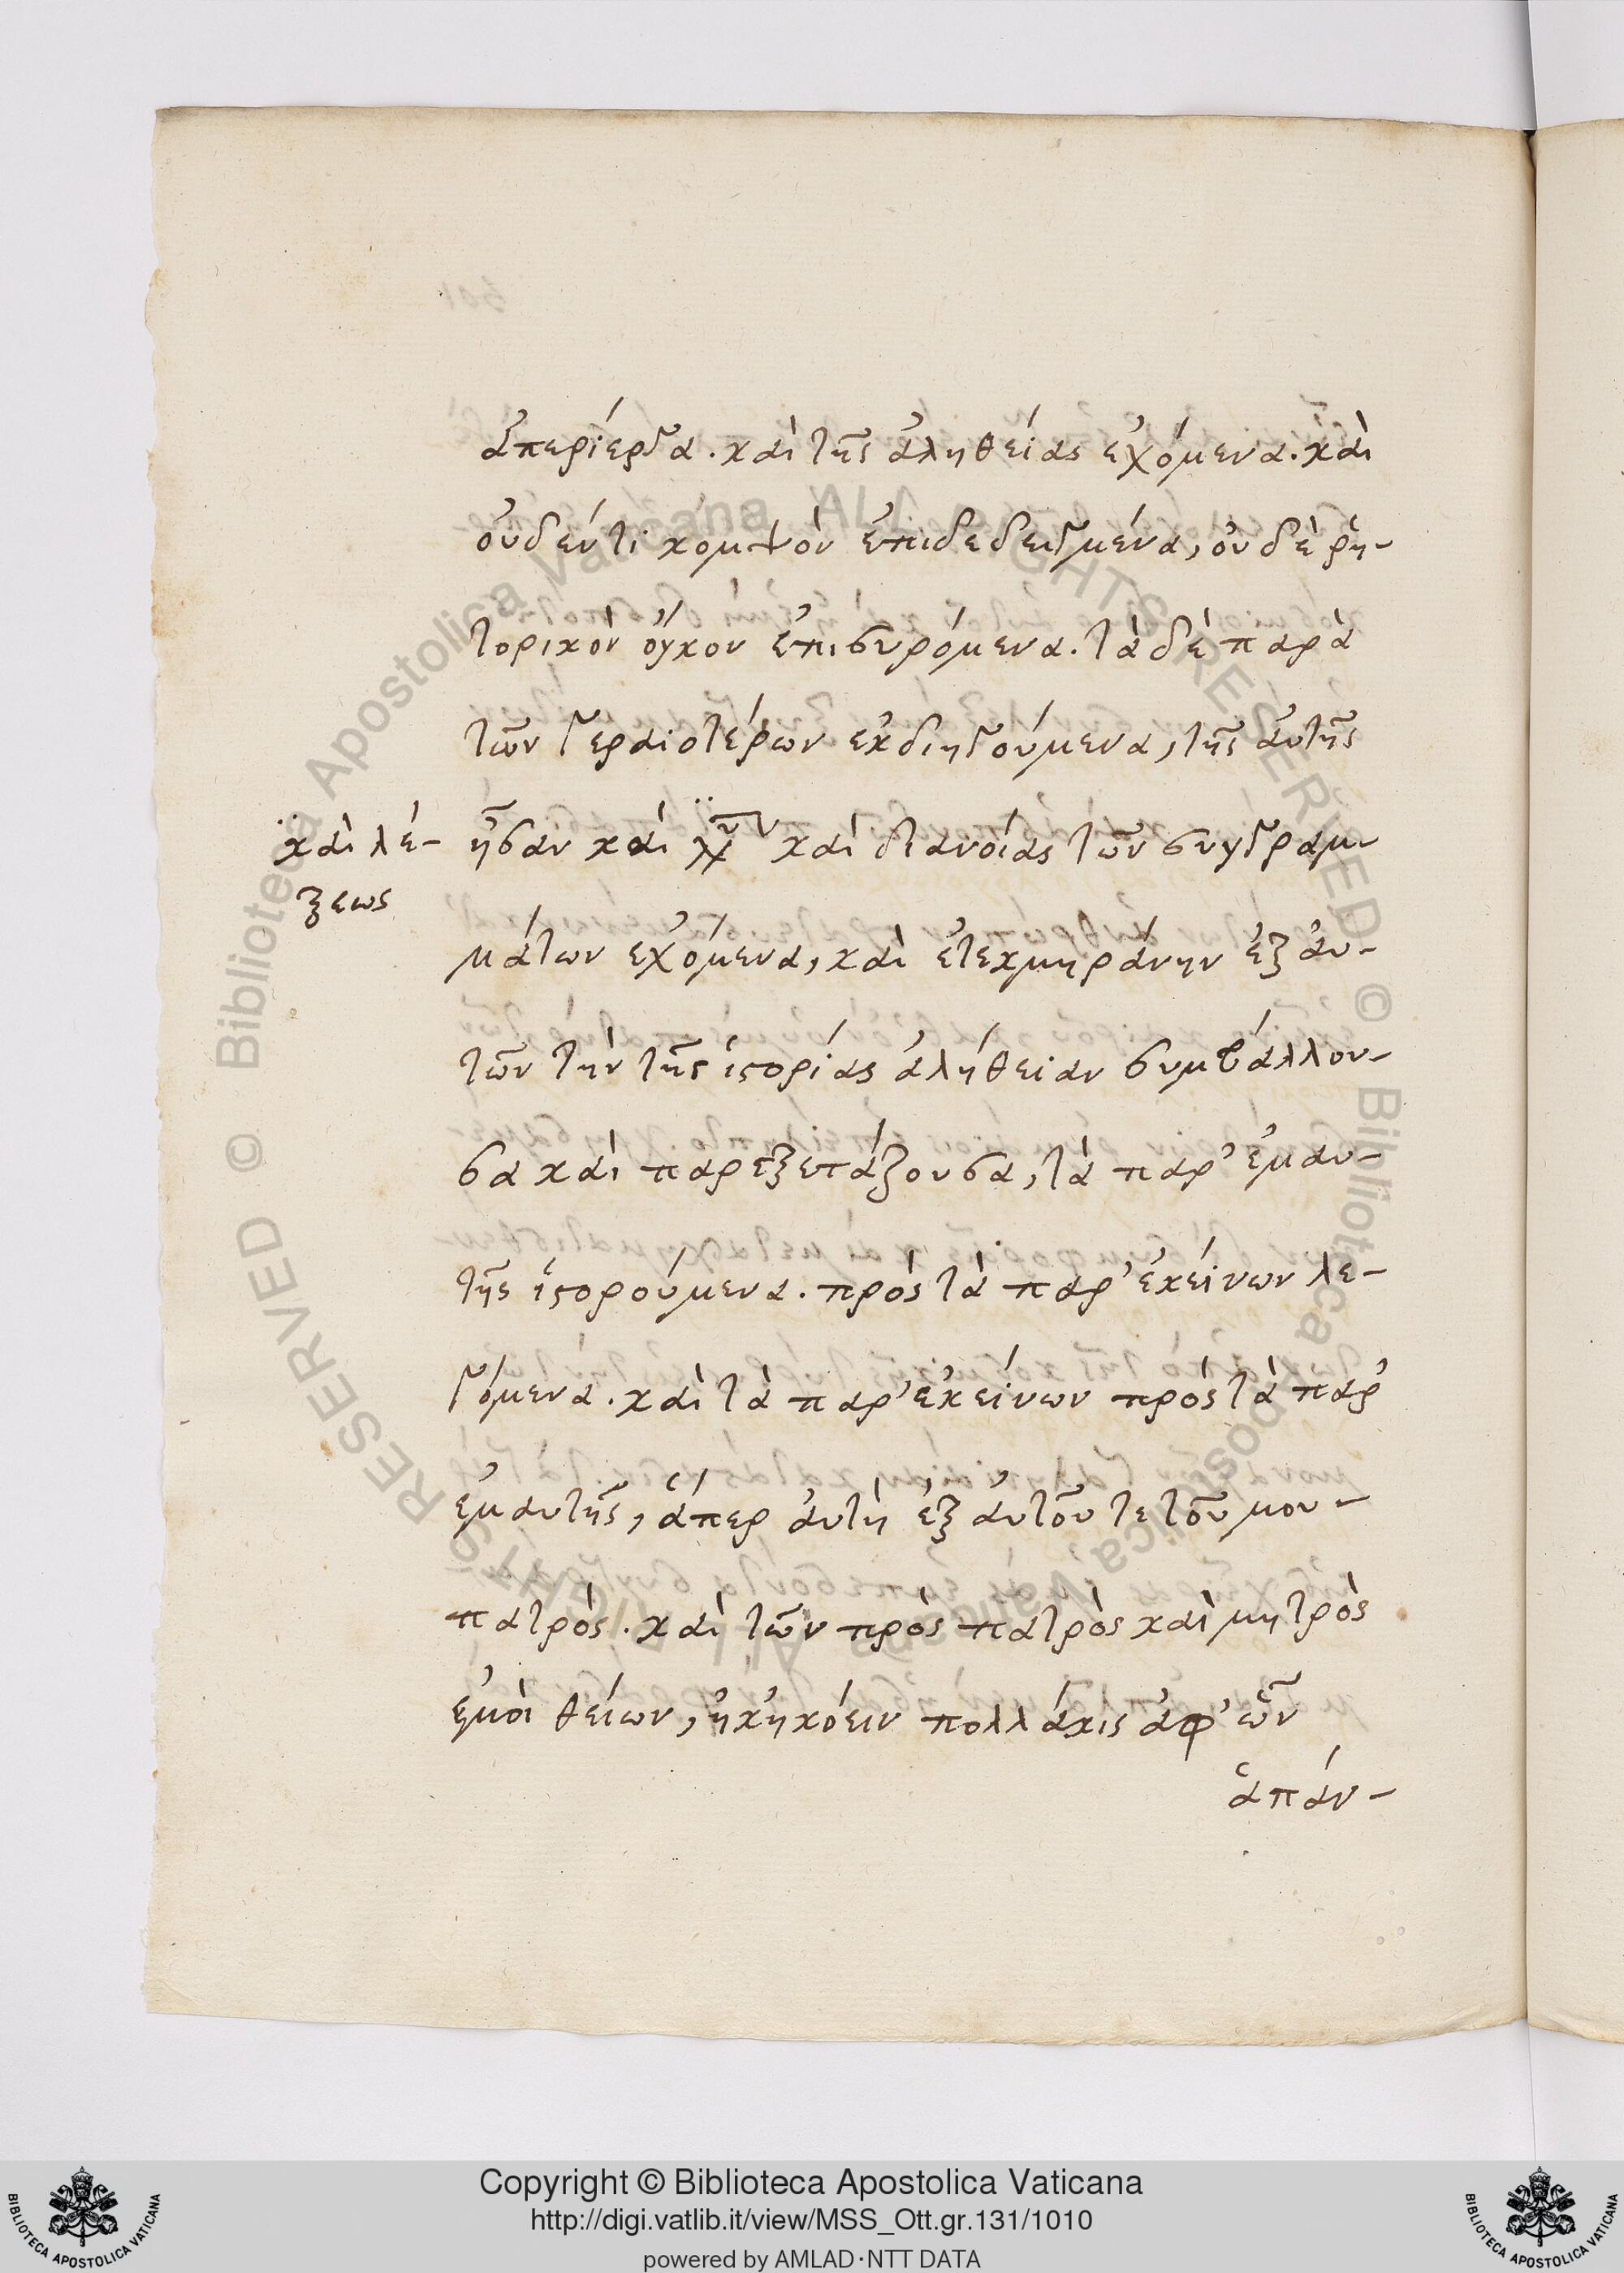 ἀπερίεργα. καὶ τῆς ἀληθείας ἐχόμενα. καὶ
οὐδέν τι κομψὸν ἐπιδεδειγμένα, οὐδὲ ῥη-
τορικὸν ὄγκον ἐπισυρόμενα. τὰ δὲ παρὰ
τῶν γεραιοτέρων ἐκδιηγούμενα, τῆς αὐτῆς
ἦσαν καὶ καὶ διανοίας τῶν συγγραμ-
καὶ λέ-
ξεως
μάτων ἐχόμενα, καὶ ἐτεκμηράνην ἐξ αὐ-
τῶν τὴν τῆς ἱστορίας ἀλήθειαν συμβάλλου-
σα καὶ παρεξετάζουσα, τὰ παρ' ἐμαυ-
τῆς ἱστορούμενα. πρὸς τὰ παρ' ἐκείνων λε-
γόμενα. καὶ τὰ παρ' ἐκείνων πρὸς τὰ παρ'
ἐμαυτῆς, ἅπερ αὐτὴ ἐξ αὐτοῦ τε τοῦ μου-
πατρὸς. καὶ τῶν πρὸς πατρὸς καὶ μητρὸς
ἐμοὶ θείων, ἠκηκόειν πολλάκις ἀφ' ὧν
ἁπάν-
Copyright © Biblioteca Apostolica Vaticana
http://digi.vatlib.it/view/MSS_Ott.gr.131/1010
powered by AMLAD·NTT DATA
BIBLIOTECA APOSTOLICA VATICANA
BIBLIOTECA APOSTOLICA VATICANA